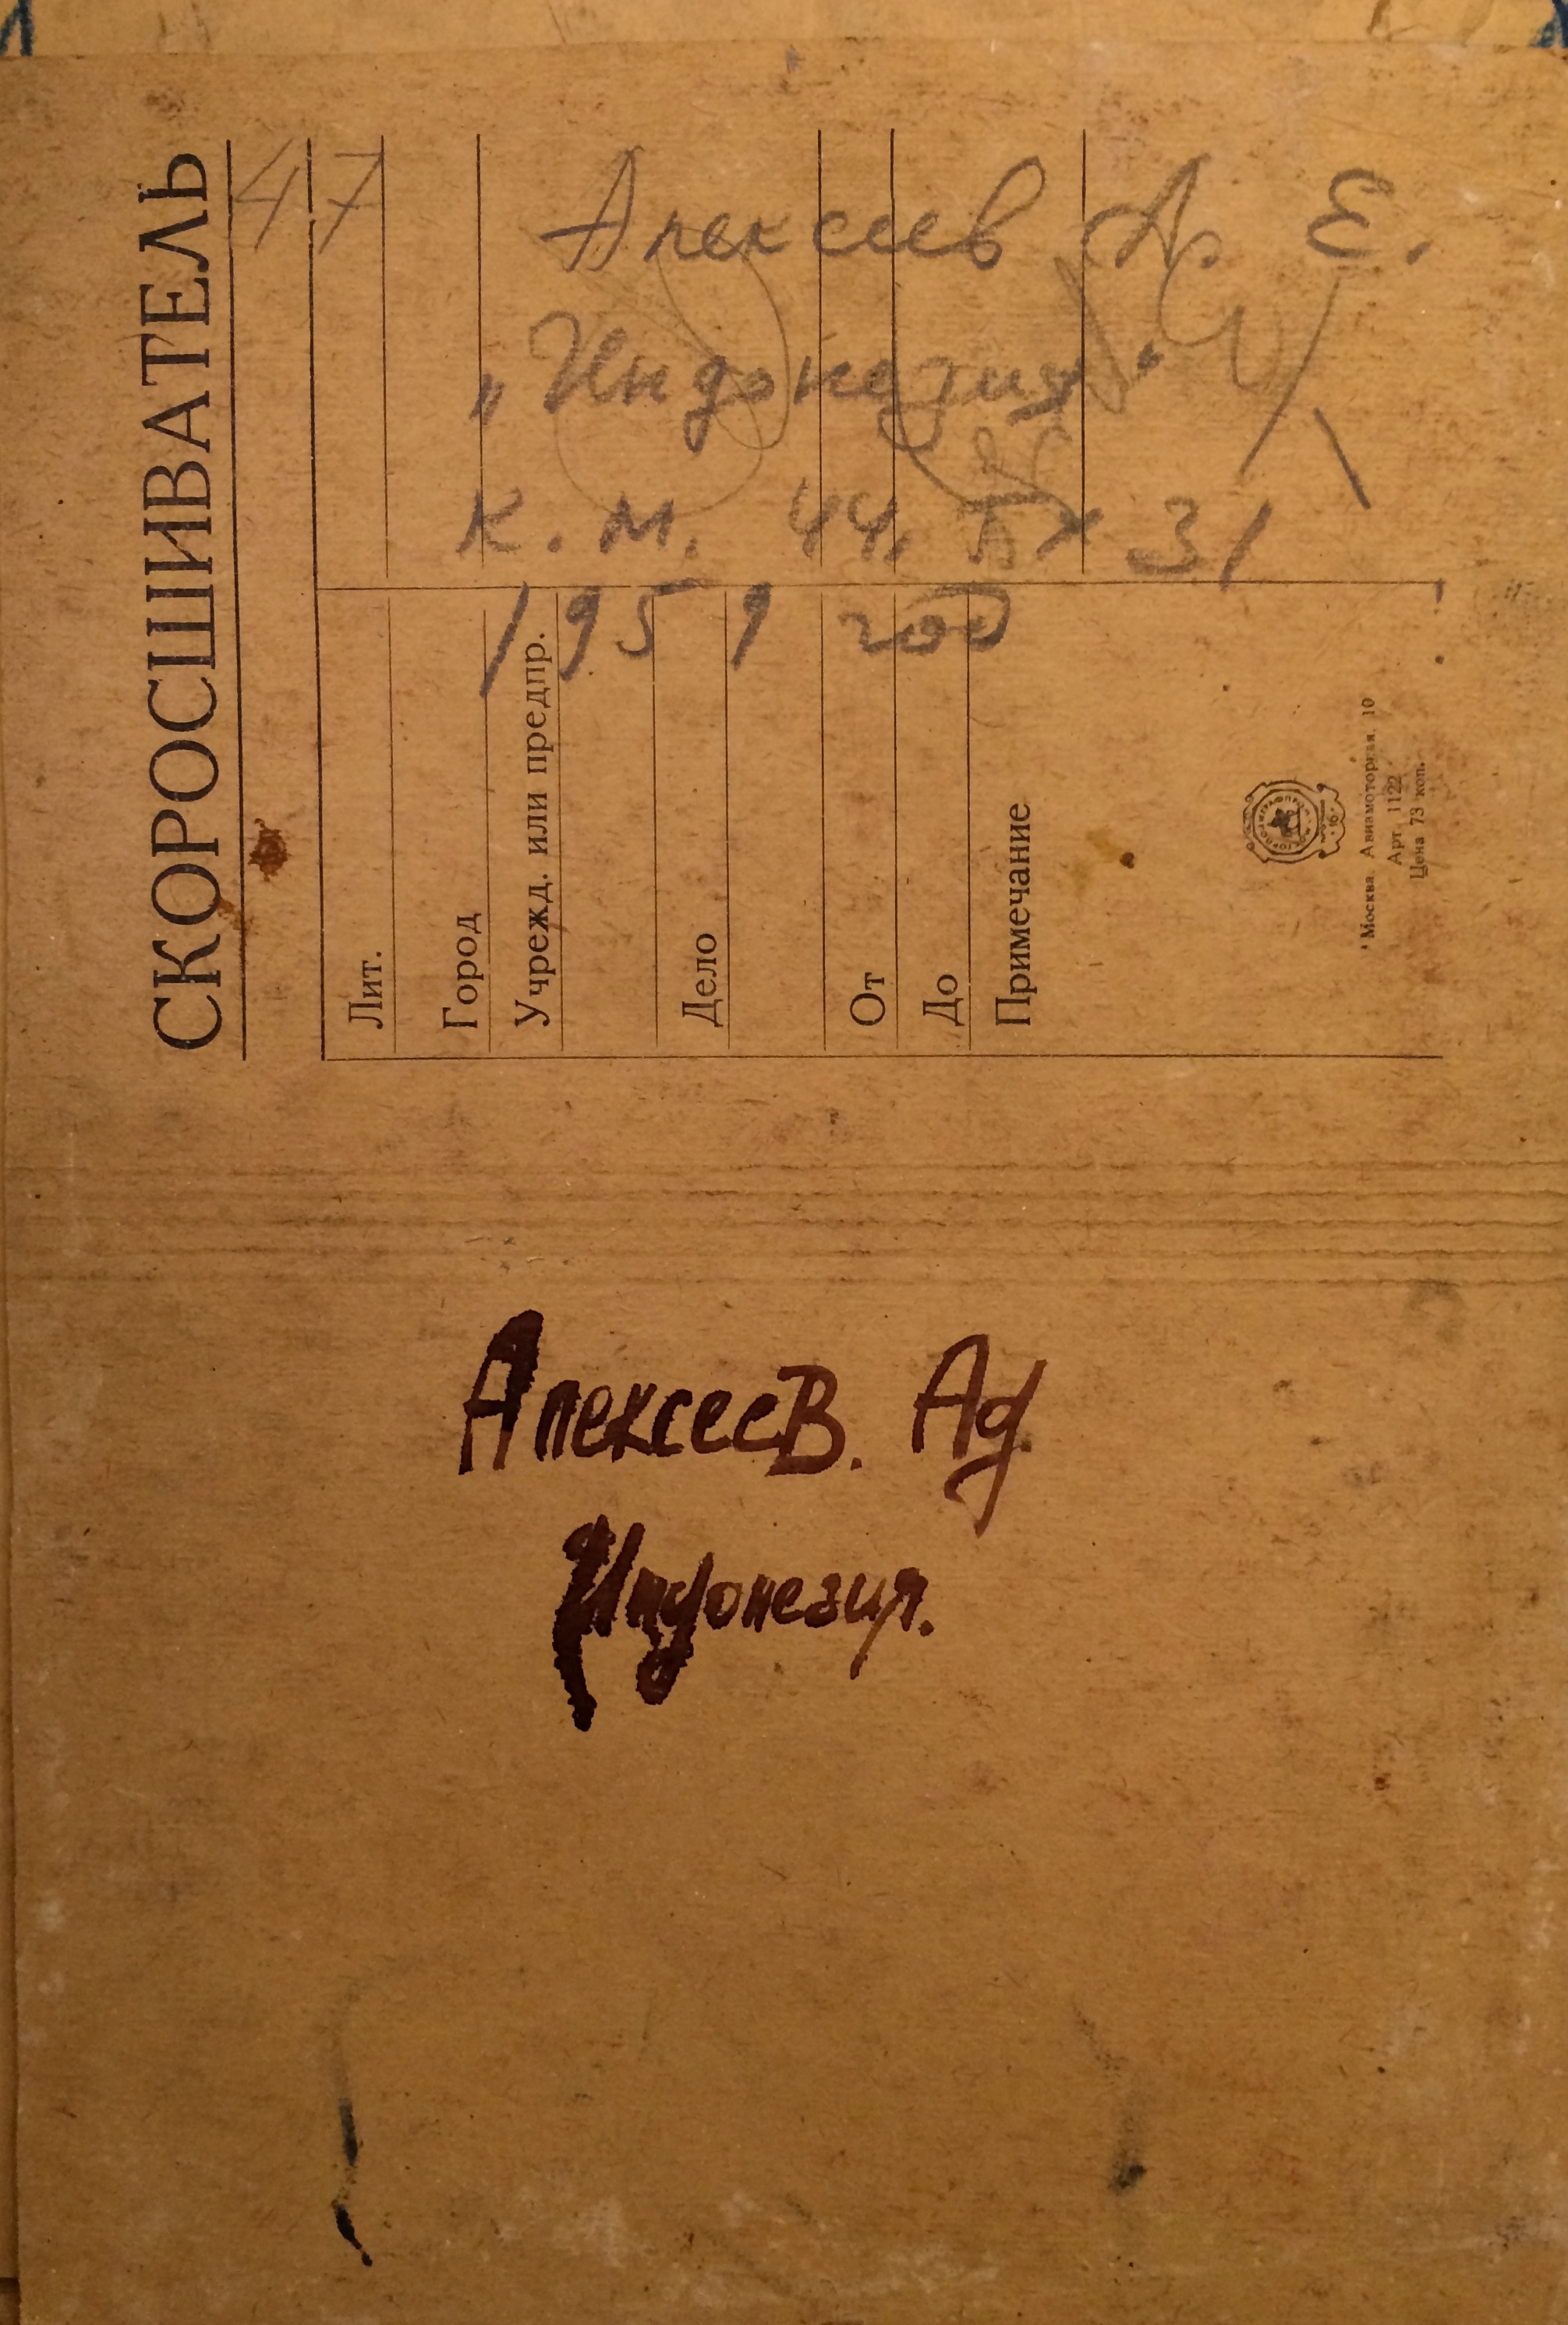 СКОРОСШИВАТЕЛЬ
Лит.
Город
Учрежд. или предпр.
Дело
От
До
Примечание
Москва. Авиамоторная, 10
Арт. 1122
Цена 73 коп.
47
Алексеев А. Е.
„Индонезия"
К. М. 44, 31
1959 год
Алексеев. Ад.
Индонезия.